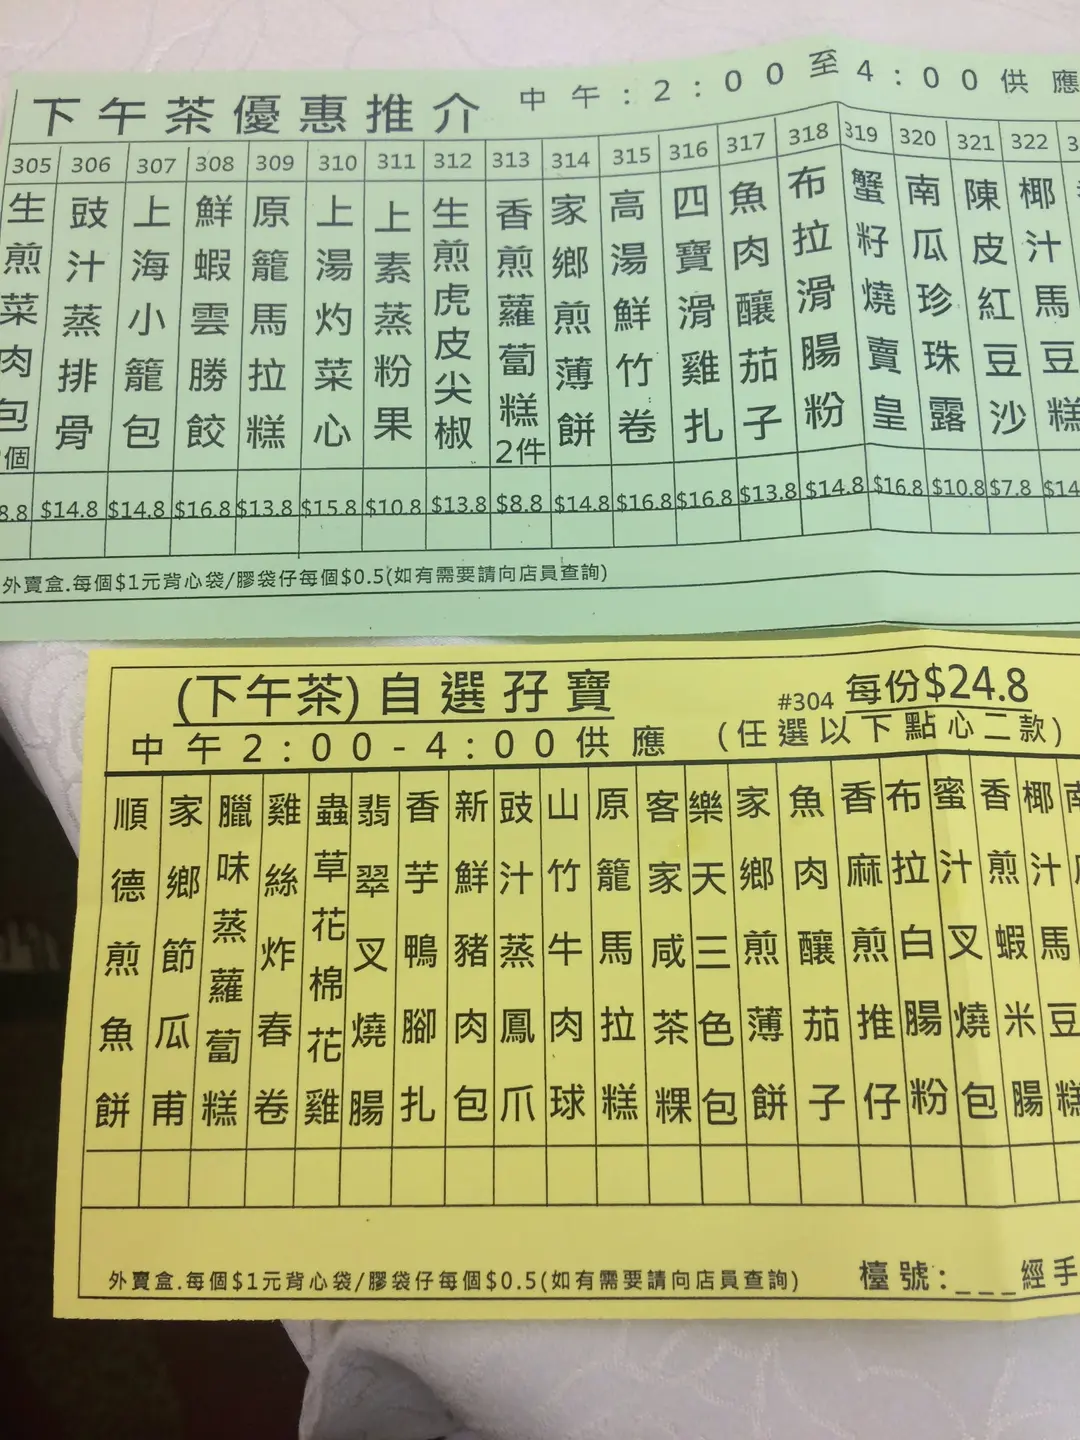 下午茶優惠推介 中午:2:00至4:00供應
305 306 307 308 309 310 311 312 313 314 315 316 317 318 319 320 321 322
生煎菜肉包
豉汁蒸排骨
上海小籠包
鮮蝦雲勝餃
原籠馬拉糕
上湯灼菜心
上素蒸粉果
生煎虎皮尖椒
香煎蘿蔔糕2件
家鄉煎薄餅
高湯鮮竹卷
四寶滑雞扎
魚肉釀茄子
布拉滑腸粉
蟹籽燒賣皇
南瓜珍珠露
陳皮紅豆沙
椰汁馬豆糕
8.8 $14.8 $14.8 $16.8 $13.8 $15.8 $10.8 $13.8 $8.8 $14.8 $16.8 $16.8 $13.8 $14.8 $16.8 $10.8 $7.8 $14
外賣盒.每個$1元背心袋/膠袋仔每個$0.5(如有需要請向店員查詢)
(下午茶)自選孖寶 #304 每份$24.8
中午2:00-4:00供應 (任選以下點心二款)
順德煎魚餅
家鄉節瓜甫
臘味蒸蘿蔔糕
雞絲炸春卷
蟲草花棉花雞
翡翠叉燒腸
香芋鴨腳扎
新鮮豬肉包
豉汁蒸鳳爪
山竹牛肉球
原籠馬拉糕
客家咸茶粿
樂天三色包
家鄉煎薄餅
魚肉釀茄子
香麻煎推仔
布拉白腸粉
蜜汁叉燒包
香煎蝦米腸
椰汁馬豆糕
外賣盒.每個$1元背心袋/膠袋仔每個$0.5(如有需要請向店員查詢) 檯號:___經手